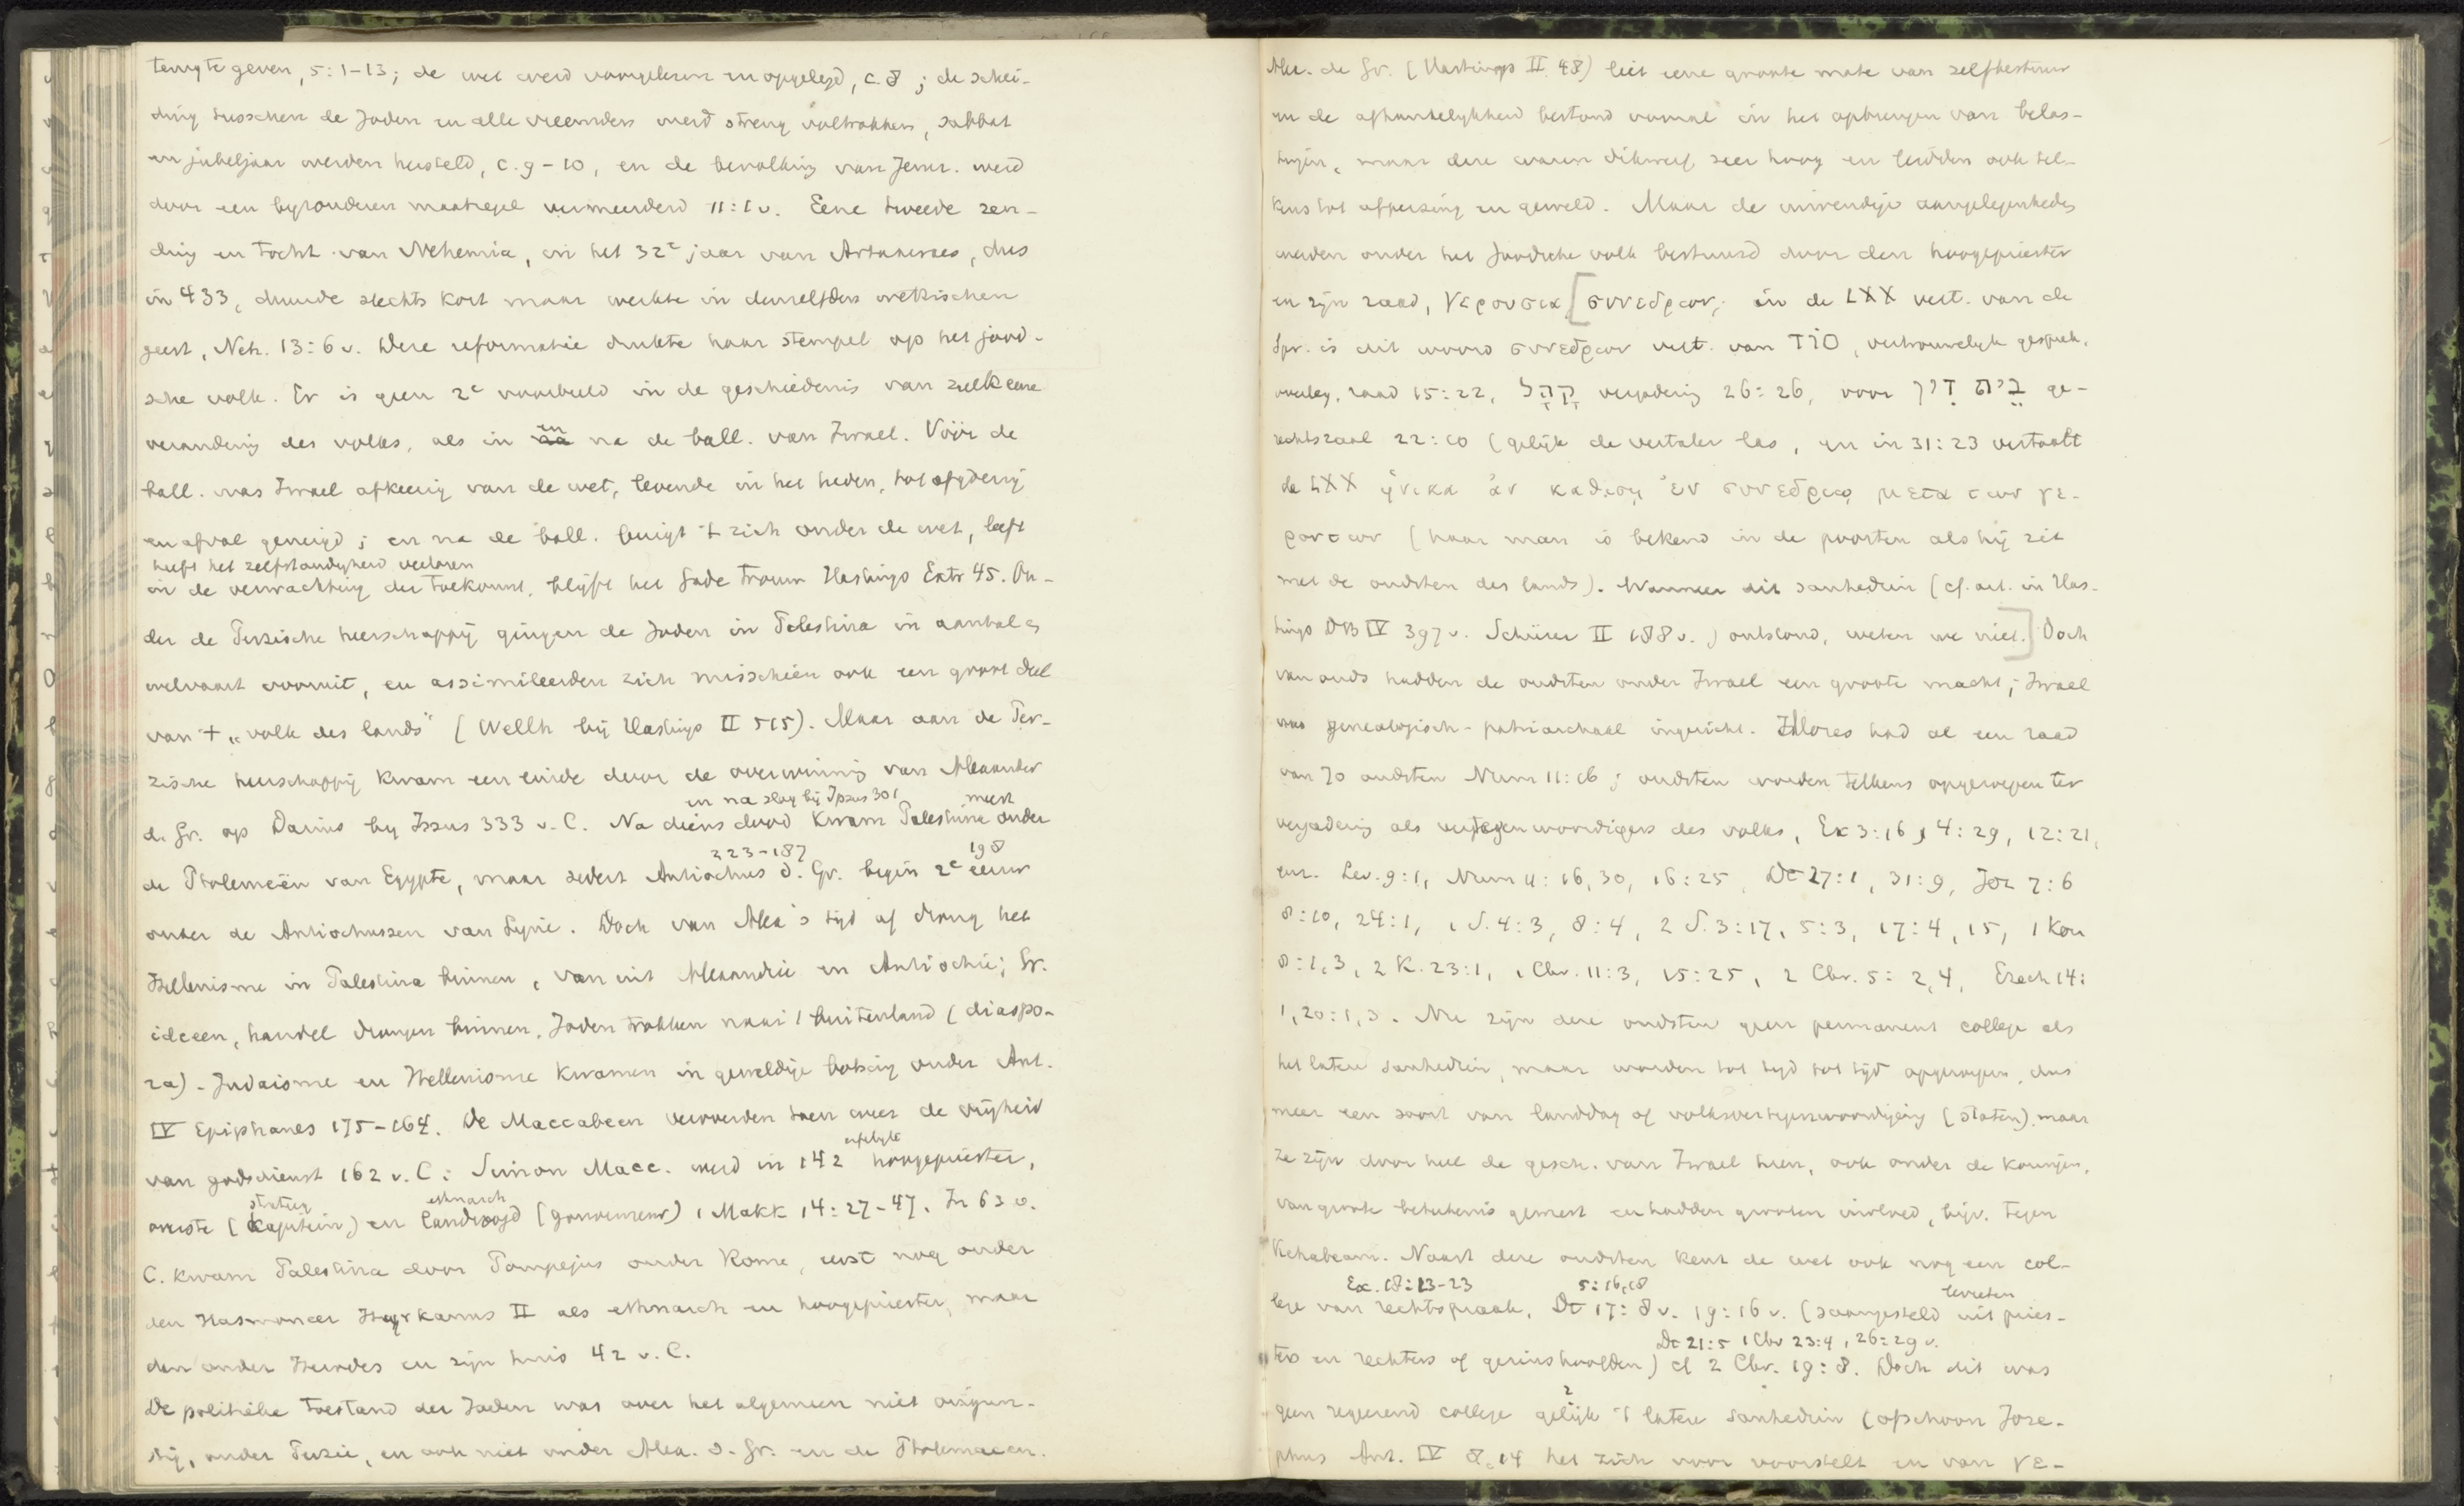 terug te geven, 5:1-13; de wet werd voorgelezen en opgelegd, c. 8; de schei-
ding tusschen de Joden en alle vreemden werd streng voltrokken, sabbat
en jubeljaar werden hersteld, c. 9-10, en de bevolking van Jerur. werd
door een byzonderen maatregel vermeerderd 11:1 v. Eene tweede zen-
ding en tocht van Nehemia, in het 32e jaar van Artaxerxes, dus
in 433, duurde slechts kort maar werkte in denzelfden wettischen
geest, Neh. 13:6 v. Deze reformatie drukte haar stempel op het jood-
sche volk. Er is geen 2e voorbeeld in de geschiedenis van zulk eene
verandering des volks, als in en na de ball. van Israel. Vóór de
ball. was Israel afkeerig van de wet, levende in het heden, tot afgoderij
en afval geneigd; en na de ball. buigt 't zich onder de wet, leeft
heeft het zelfstandigheid verloren
in de verwachting der toekomst, blijft het Gode trouw Hastings Extr 45. On-
der de Perzische heerschappij gingen de Joden in Palestina in aantal en
welvaart vooruit, en assimileerden zich misschien ook een groot deel
van 't „volk des lands" (Wellh bij Hastings II 515). Maar aan de Per-
zische heerschappij kwam een einde door de overwinning van Alexander
en na slag bij Ipsus 301 meest
d. Gr. op Darius by Issus 333 v. C. Na diens dood kwam Palestina onder
223-187 198
de Ptolemeën van Egypte, maar sedert Antiochus d. Gr. begin 2e eeuw
onder de Antiochussen van Syrie. Doch van Alex's tijd af drong het
Hellenisme in Palestina binnen, van uit Alexandrie en Antiochie; Gr.
ideeen, handel drongen binnen, Joden trokken naar 't buitenland (diaspo-
ra). Judaisme en Hellenisme kwamen in geweldige botsing onder Ant.
IV Epiphanes 175-164. De Maccabeen veroverden toen weer de vrijheid
erfelijk
van godsdienst 162 v. C.; Simon Macc. werd in 142 hoogepriester,
strateeg ethnarch
overste (kapitein) en landvoogd (gouverneur) 1 Makk 14:27-47. In 63 v.
C. kwam Palestina door Pompejus onder Rome, eerst nog onder
den Hasmoneer Hyrkanus II als ethnarch en hoogepriester, maar
dan onder Herodes en zijn huis 42 v. C.
De politieke toestand der Joden was over het algemeen niet ongun-
stig, onder Perzie, en ook niet onder Alex. d. Gr. en de Ptolemaeen.
Alex. de Gr. (Hastings II 48) liet eene groote mate van zelfbestuur
en de afhankelykheid bestond vooral in het opbrengen van belas-
tingen, maar deze waren dikwerf zeer hoog en leidden ook tel-
kens tot afpersing en geweld. Maar de inwendige aangelegenheden
werden onder het Joodsche volk bestuurd door den hoogepriester
en zijn raad, γερουσια [συνεδριον; in de LXX vert. van de
Spr. is dit woord συνεδριον vert. van סוֹד, vertrouwelyk gesprek,
overleg, raad 15:22, קָהָל vergadering 26:26, voor בֵּית דִּין ge-
rechtszaal 22:10 (gelijk de vertaler las, en in 31:23 vertaalt
de LXX ἡνικα ἀν καθιση ἐν συνεδριῳ μετα των γε-
ροντων (haar man is bekend in de poorten als hij zit
met de oudsten des lands). Wanneer dit sanhedrin (cf. art. in Has-
tings DB IV 397 v. Schürer II 188 v.) ontstond, weten we niet.] Doch
van ouds hadden de oudsten onder Israel een groote macht; Israel
was genealogisch-patriarchaal ingericht. Mozes had al een raad
van 70 oudsten Num 11:16; oudsten worden telkens opgeroepen ter
vergadering als vertegenwoordigers des volks, Ex 3:16, 4:29, 12:21,
enz. Lev. 9:1, Num 11:16, 30, 16:25, Dt 27:1, 31:9, Joz 7:6
8:10, 24:1, 1 S. 4:3, 8:4, 2 S. 3:17, 5:3, 17:4, 15, 1 Kon
8:1,3, 2 K. 23:1, 1 Chr. 11:3, 15:25, 2 Chr. 5:2,4, Ezech 14:
1, 20:1,3. Nu zijn deze oudsten geen permanent college als
het latere sanhedrin, maar worden tot tyd tot tijd opgeroepen, dus
meer een soort van landdag of volksvertegenwoordiging (staten), maar
ze zijn door heel de gesch. van Israel heen, ook onder de koningen,
van groote beteekenis geweest en hadden grooten invloed, bijv. tegen
Rehabeam. Naast deze oudsten kent de wet ook nog een col-
Ex. 18:13-23 5:16,18 levieten
lege van rechtspraak, Dt 17:8 v. 19:16 v. (saamgesteld uit pries-
Dt 21:5 1 Chr 23:4, 26:29 v.
ters en rechters of gezinshoofden) cf 2 Chr. 19:8. Doch dit was
geen regeerend college gelijk 't latere sanhedrin (ofschoon Jose-
phus Ant. IV 8,14 het zich voor voorstelt en van γε-